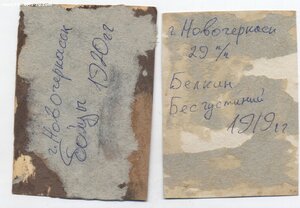 г. Новочеркасск
Бойцы 1920 гг
г. Новочеркасск
29 п/п
Белкин
Бесчустиний
1919 гг